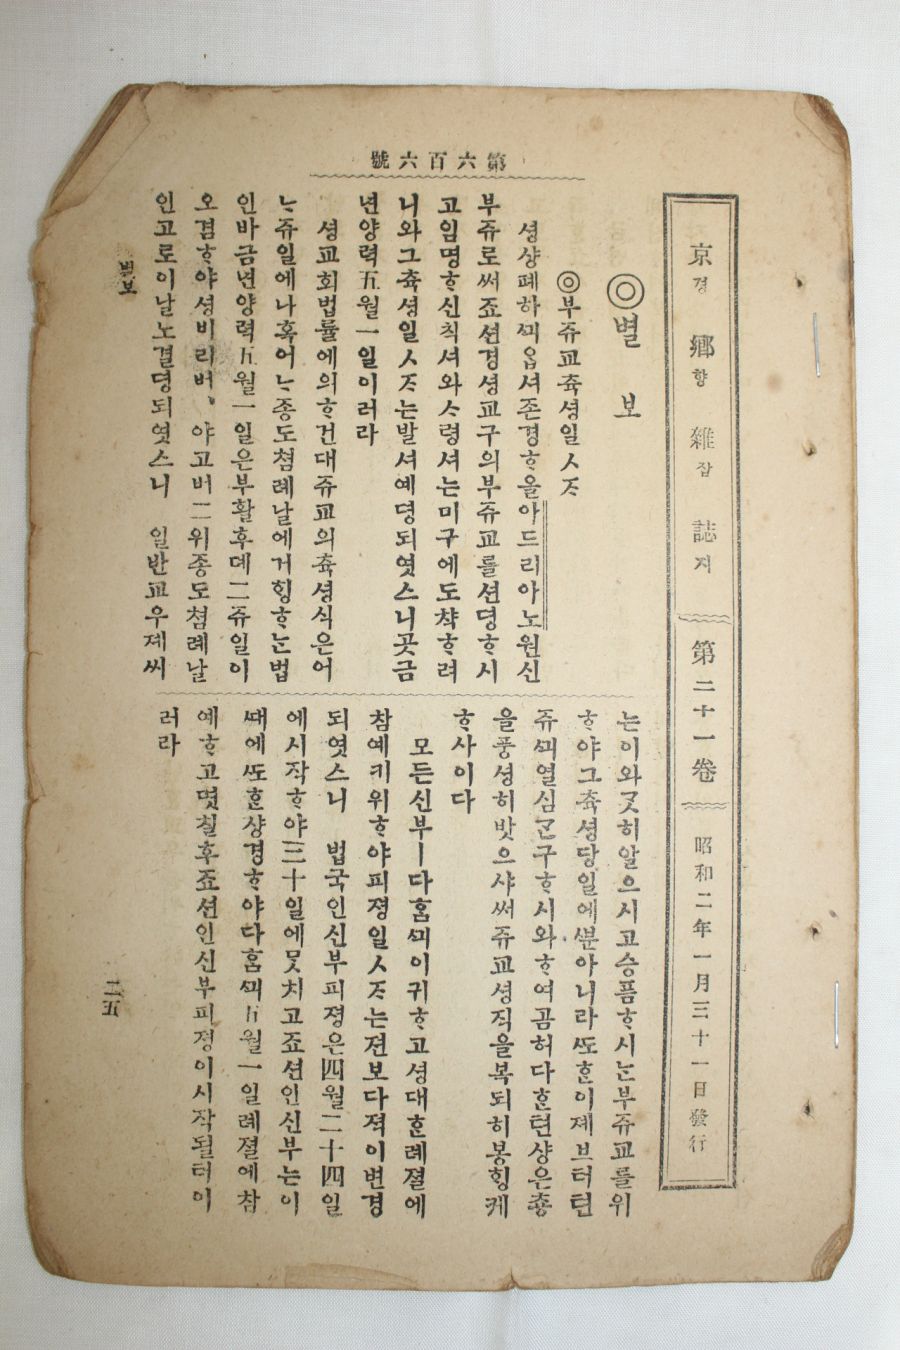 第六百六號
京경 鄕향 雜잡 誌지 第二十一卷 昭和二年一月三十一日發行
◎별 보
◎부쥬교츅셩일ᄌᆞ
셩샹폐하ᄭᅴ옵셔존경ᄒᆞ올아드리아노원신
부쥬로써죠션경셩교구의부쥬교를션뎡ᄒᆞ시
고임명ᄒᆞ신칙셔와ᄉᆞ령셔는미구에도챡ᄒᆞ려
니와그츅셩일ᄌᆞ는발셔예뎡되엿스니곳금
년양력五월一일이러라
셩교회법률에의ᄒᆞ건대쥬교의츅셩식은어
ᄂᆞ쥬일에나혹어ᄂᆞ종도쳠례날에거ᄒᆡᆼᄒᆞᄂᆞᆫ법
인바금년양력五월一일은부활후뎨二쥬일이
오겸ᄒᆞ야셩비리버、야고버二위종도쳠례날
인고로이날노결뎡되엿스니 일반교우졔씨
는이와ᄀᆞᆺ히알으시고승픔ᄒᆞ시ᄂᆞᆫ부쥬교를위
ᄒᆞ야그츅셩당일에ᄲᅮᆫ아니라ᄯᅩᄒᆞᆫ이졔브터텬
쥬ᄭᅴ열심ᄀᆞᆫ구ᄒᆞ시와ᄒᆞ여곰허다ᄒᆞᆫ텬샹은춍
을풍셩히밧으샤써쥬교셩직을복되히봉ᄒᆡᆼ케
ᄒᆞ사이다
모든신부ㅣ다ᄒᆞᆷᄭᅴ이귀ᄒᆞ고셩대ᄒᆞᆫ례졀에
참예키위ᄒᆞ야피졍일ᄌᆞ는젼보다젹이변경
되엿스니 법국인신부피졍은四월二十四일
에시작ᄒᆞ야三十일에ᄆᆞᆺ치고죠션인신부는이
ᄯᅢ에ᄯᅩᄒᆞᆫ샹경ᄒᆞ야다ᄒᆞᆷᄭᅴ五월一일례졀에참
예ᄒᆞ고몃칠후죠션인신부피졍이시작될터이
러라
별보
二五